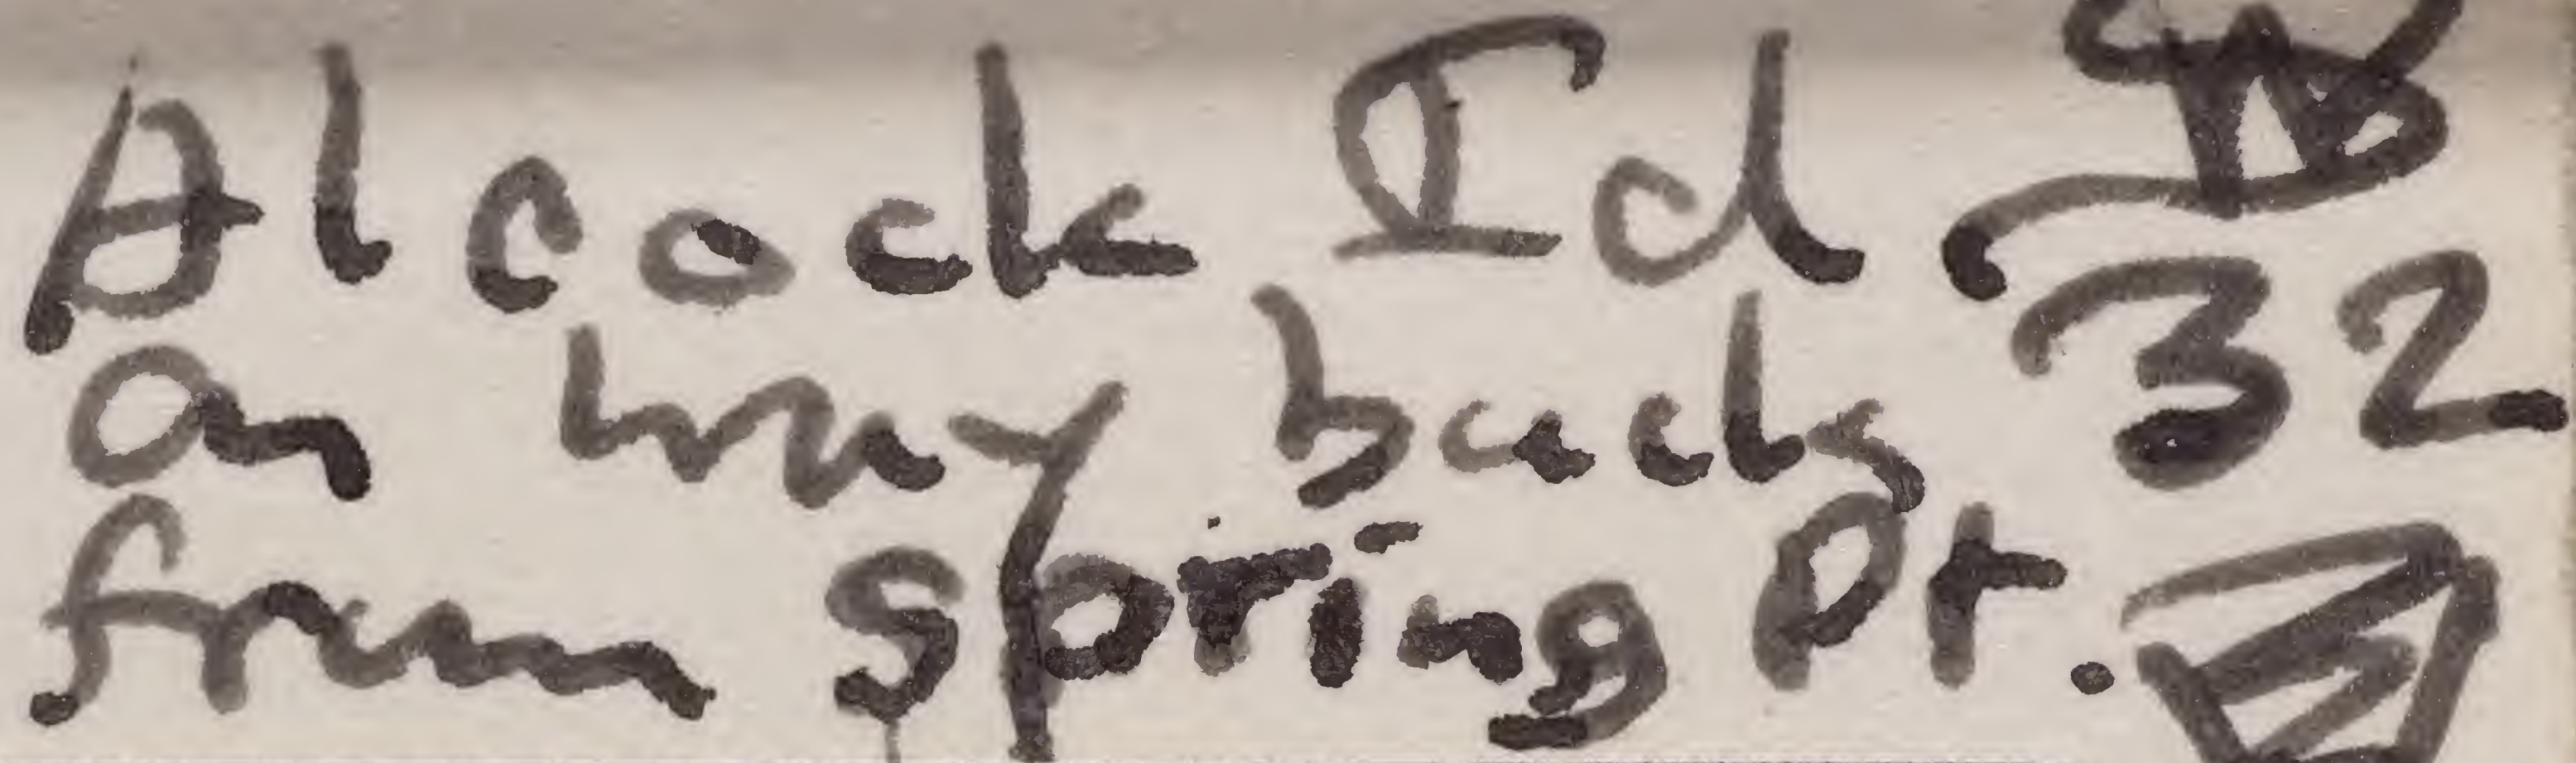 Alcock Id
on my back 32
from Spring Pt.